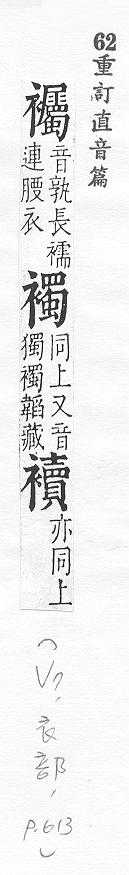 62重訂直音篇
音孰長襦
連腰衣
襡
同上又音
獨襡韜藏
襩
亦同上
(V7, 衣部, p.613)